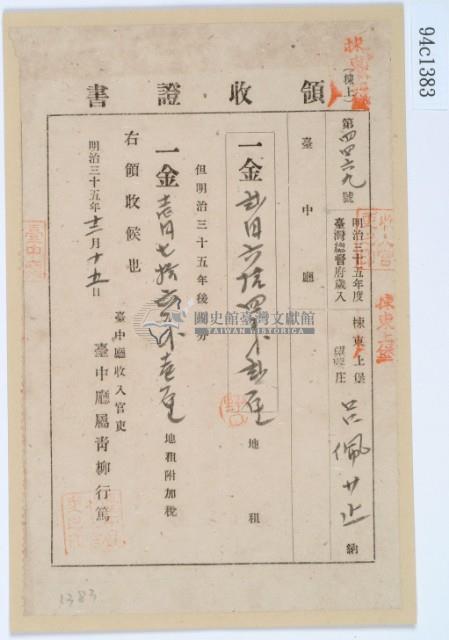 94c1383
領收證書
(棟上)
第四四六九號
明治三十五年度
臺灣總督府歲入
棟東上堡
庄
呂佩
納
臺中廳
一金貳円六拾四錢貳厘
地租
但明治三十五年後分
一金壱円七拾六錢壱厘
地租附加稅
右領收候也
明治三十五年十二月十五日
臺中廳收入官吏
臺中廳屬青柳行篤
國史館臺灣文獻館
TAIWAN HISTORICA
棟東上堡
臺中廳
1383